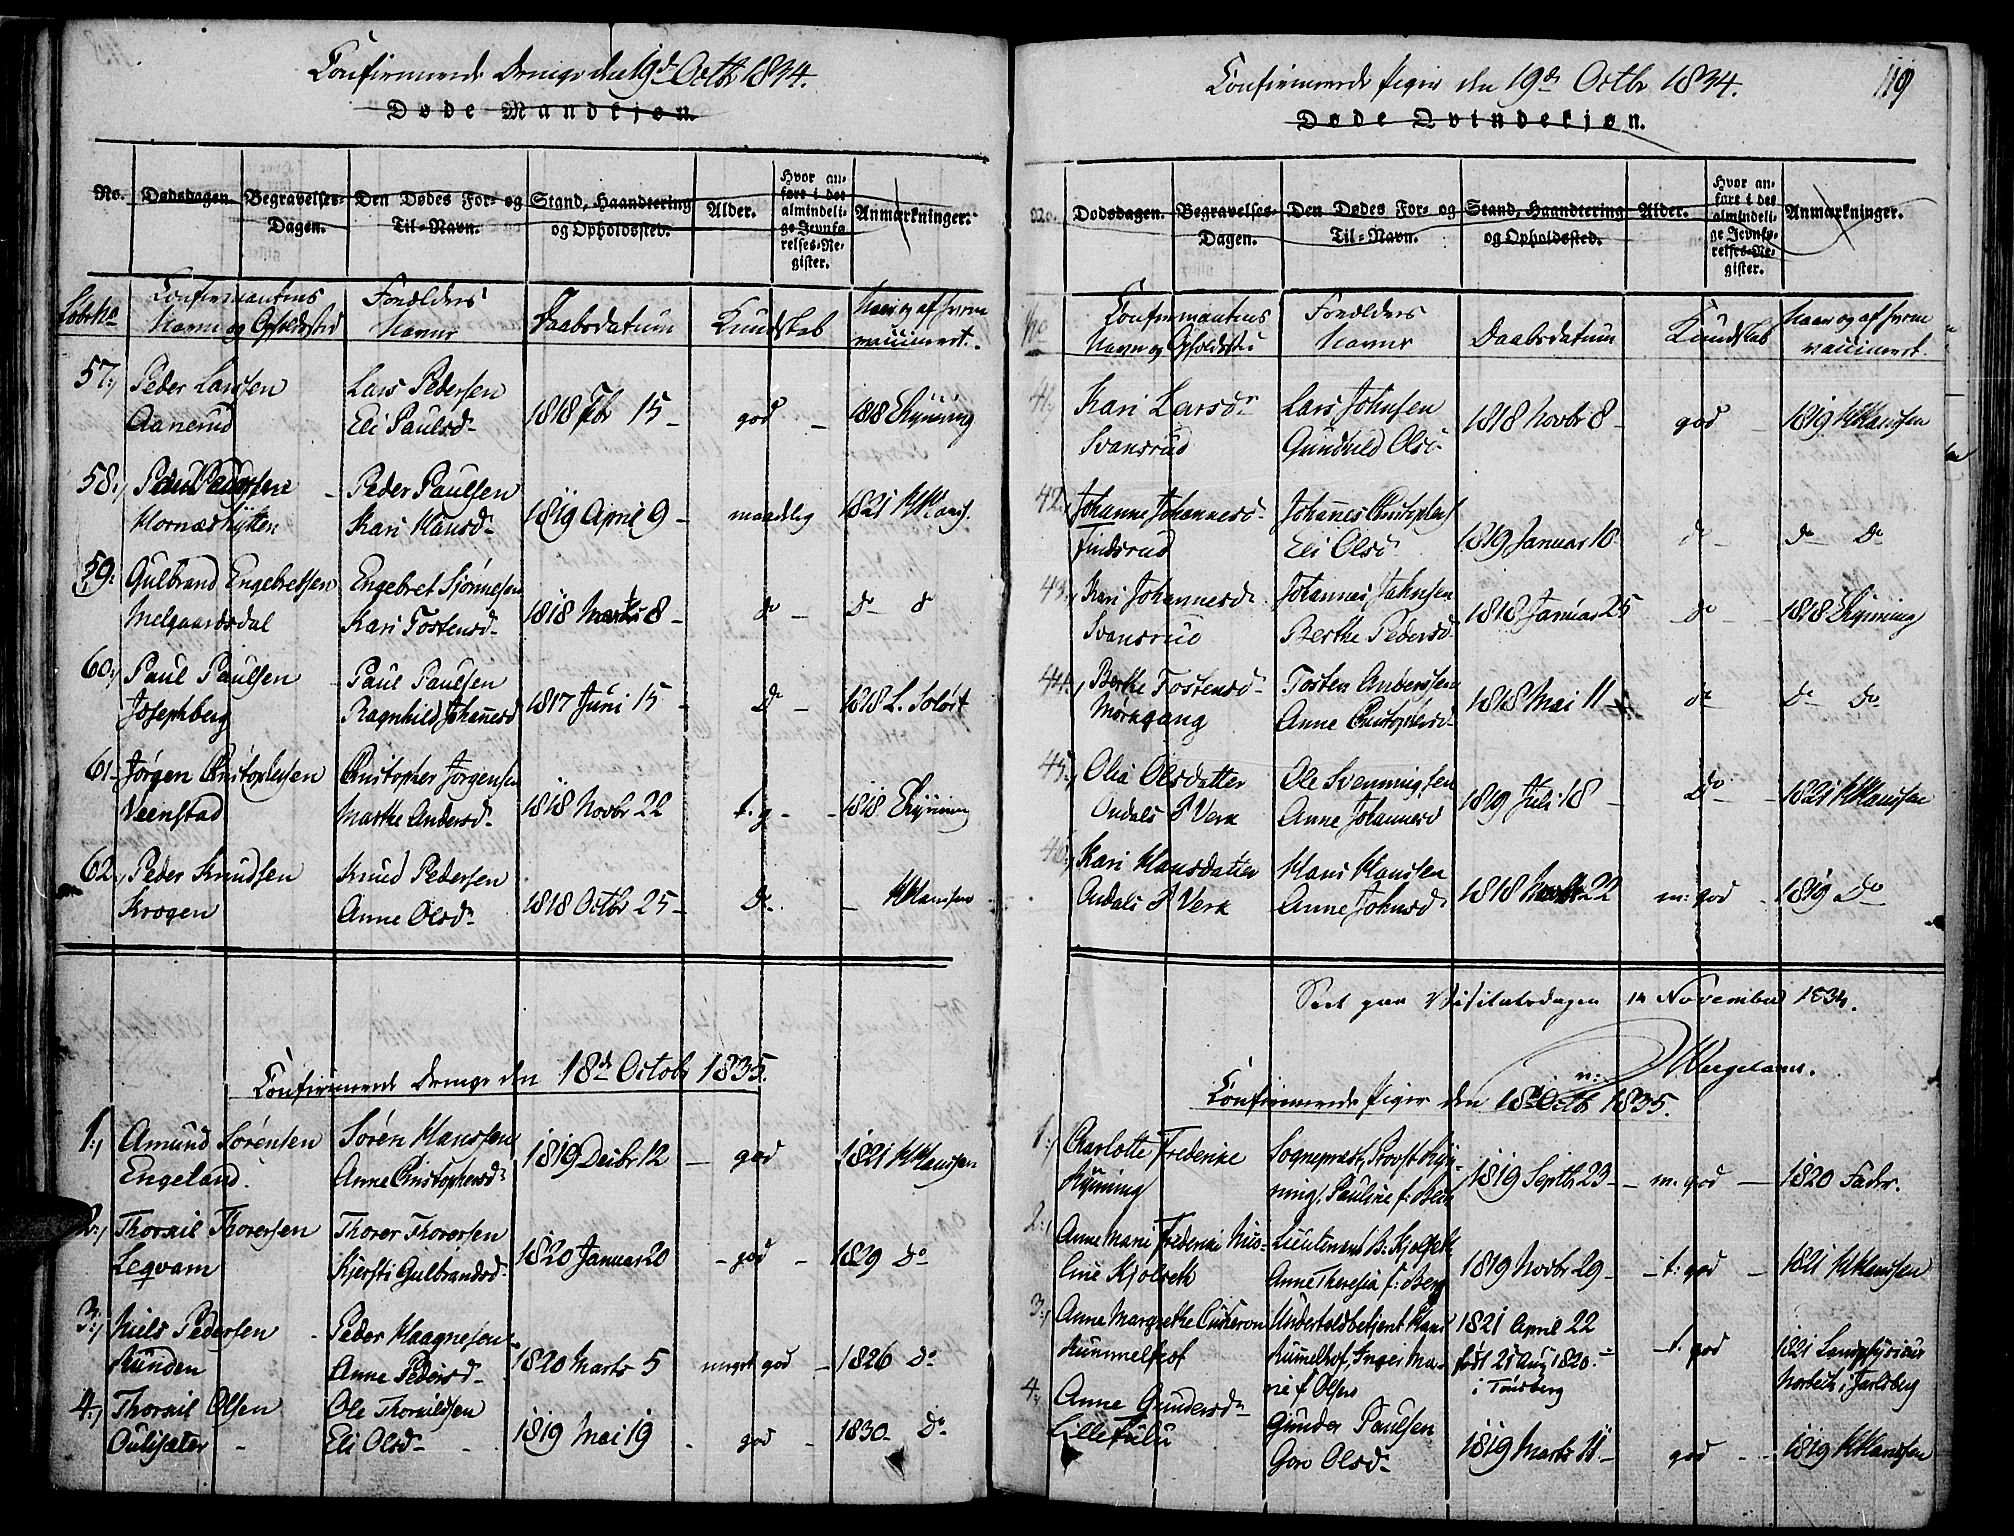 Confirmerede Drenge den 19de Octbr 1834.
Døde Mandkjøn.
No. Dødsdagen. Begravelses-Dagen. Den Dødes For- og Til-Navn. Stand, Haandtering og Opholdssted. Alder. Hvor anført i det almindelige Jevnførelses-Register. Anmærkninger.
Løbe No Confirmantens Navn og Opholdssted Forældres Navne Daabsdatum Kundskab Naar og af hvem vaccineret.
57. Peder Larssen Lars Pedersen
Aanerud Eli Paulsd. 1818 Febr 15 god 1818 Kyning
58. Peder Paulsen
Hornæshytten Kari Hansd. 1819 April 9 maadelig 1821 K Hans.
59. Gulbrand Engebretsen Engebret Sjønnesen
Melgaardsdal Kari Tostensd. 1818 Marts 8 do do do
60. Paul Paulsen Paul Paulsen
Josephberg Ragnhild Johannesd 1817 Juni 15 Do 1818 L. Soløst
61. Jørgen Christophersen Christopher Jørgensen
Veenstad Marthe Andersd. 1818 Novbr 22 t. g. 1818 Kyning
62. Peder Knudsen Knud Pedersen
Krogen Anne Olsd. 1818 Octbr 25 Do K Hanssen
Confirmerede Drenge den 18de Octobr 1835.
1. Amund Sørensen Søren Hanssen
Engeland. Anne Christophersd. 1819 Decbr 12 god 1821 K Hanssen
2. Thorkil Thorersen Thorer Thorersen
Leqvam Kjersti Gulbrandsd. 1820 Januar 20 god 1829 Do
3. Niels Pedersen Peder Haagnesen
Runden Anne Pedersd. 1820 Marts 5 meget god 1826 Do
4. Thorkil Olsen Ole Thorkildsen
Oulisæter Eli Olsd. 1819 Mai 19 god 1830 Do
Confirmerede Piger den 19de Octbr 1834.
119
Døde Qvindekjøn.
No. Dødsdagen. Begravelses-Dagen. Den Dødes For- og Til-Navn. Stand, Haandtering og Opholdssted. Alder. Hvor anført i det almindelige Jevnførelses-Register. Anmærkninger.
No Confirmantens Navn og Opholdssted Forældres Navne Daabsdatum Kundskab Naar og af hvem vaccineret.
41. Kari Larsd. Lars Johnsen
Svansrud Gunhild Olsd. 1818 Novbr 8 god 1819 K Hanssen
42. Johanne Johannesd. Johannes Christophers
Findsrud Eli Olsd 1819 Januar 10 do do Do
43. Kari Johannesd. Johannes Johnsen
Svansrud Berthe Pedersd. 1818 Januar 25 do 1818 Kyning
44. Berthe Tostensd. Tosten Anderssen
Mørkgang Anne Christophersd. 1818 Mai 11 do do Do
45. Olia Olsdatter Ole Svenningsen
Oudals Verk Anne Johannesd 1819 Juli 18 Do 1821 K Hanssen
46. Kari Hansdatter Hans Hanssen
Oudals Verk Anne Johnsd 1818 Marts 22 m: god 1819 Do
Seet paa Visitatsdagen 14 November 1834.
N: Wergeland.
Confirmerede Piger den 18de Octbr 1835.
1. Charlotte Frederike Sognepræst, Provst Kyn-
Kynning ning, Pauline f: Beck 1819 Septbr 23 m. god 1820 Fader.
2. Anne Marie Frederike Nico- Lieutenant B. Kjolseth
line Kjolseth Anne Theresia f: Berg 1819 Novbr 29 t: god 1821 K Hanssen
3. Anne Margrethe Undertoldbetjent Hans 1821 April 22
Rummelhof Rumelhof, Inger Ma- født 21 Aug 1820 t. god 1821 Landphysicus
rie f. Olsen i Tønsberg i Jarlsberg
4. Anne Gundersd. Gunder Paulsen
Lille Fulu Goro Olsd. 1819 Marts 11 god 1819 K Hanssen